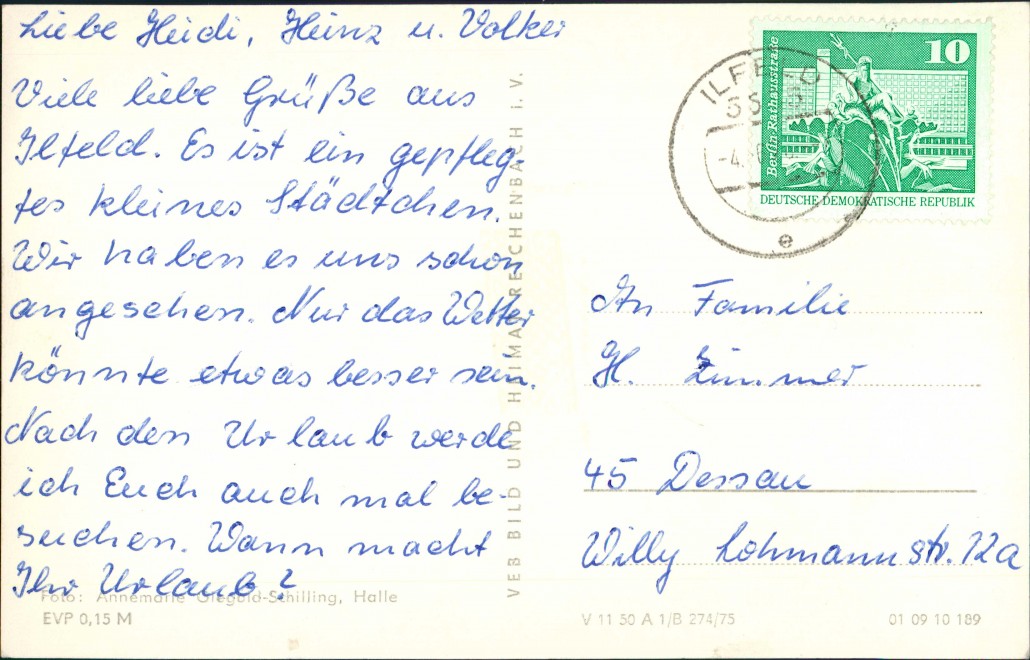 Liebe Heidi, Heinz u. Volker
Viele liebe Grüße aus
Ilfeld. Es ist ein gepfleg-
tes kleines Städtchen.
Wir haben es uns schon
angesehen. Nur das Wetter
könnte etwas besser sein.
Nach den Urlaub werde
ich Euch auch mal be-
suchen. Wann macht
Ihr Urlaub?
Foto: Annemarie Giegold-Schilling, Halle
EVP 0,15 M
VEB BILD UND HEIMAT REICHENBACH i. V.
ILFELD
Berlin Rathausstraße
10
DEUTSCHE DEMOKRATISCHE REPUBLIK
e
An Familie
H. Zimmer
45 Dessau
Willy Lohmannstr. 12a
V 11 50 A 1/B 274/75
01 09 10 189